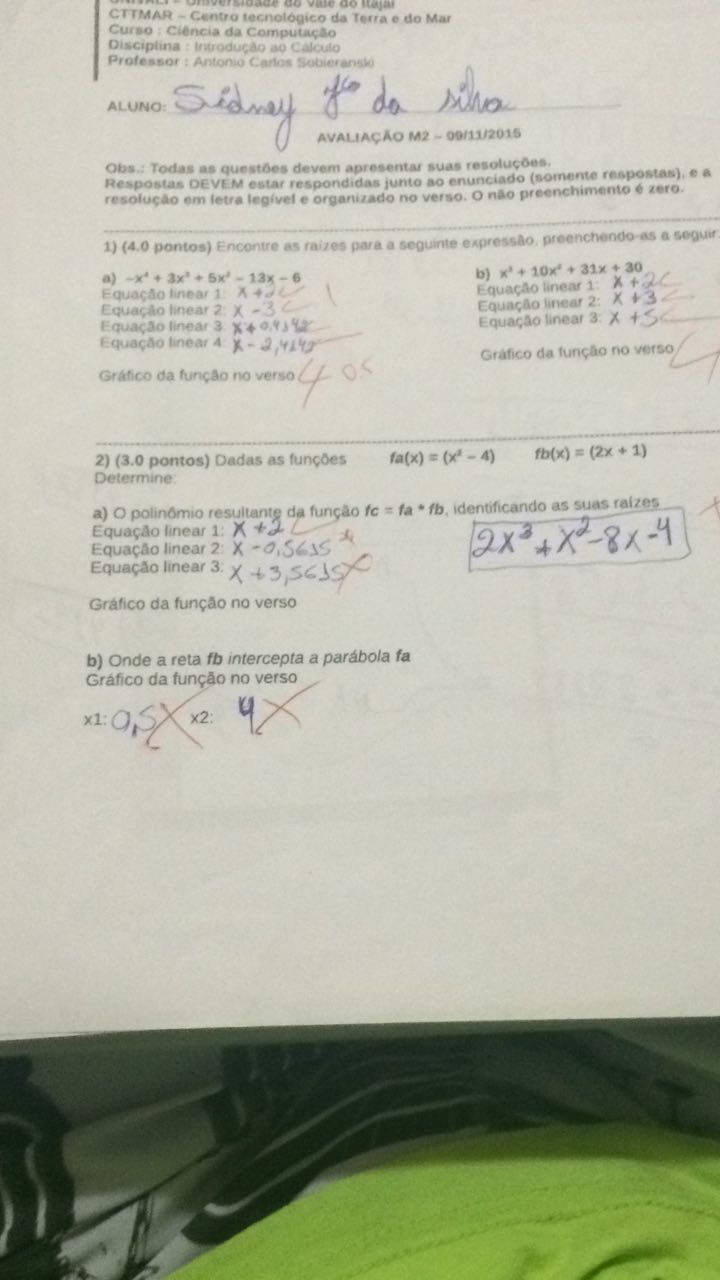 UNIVALI – Universidade do Vale do Itajaí
CTTMAR – Centro tecnológico da Terra e do Mar
Curso : Ciência da Computação
Disciplina : Introdução ao Cálculo
Professor : Antonio Carlos Sobieranski
ALUNO: Sidney da silva
AVALIAÇÃO M2 – 09/11/2015
Obs.: Todas as questões devem apresentar suas resoluções.
Respostas DEVEM estar respondidas junto ao enunciado (somente respostas), e a
resolução em letra legível e organizado no verso. O não preenchimento é zero.
1) (4.0 pontos) Encontre as raízes para a seguinte expressão, preenchendo-as a seguir.
a) –x⁴ + 3x³ + 5x² – 13x – 6
Equação linear 1: x+2
Equação linear 2: x-3
Equação linear 3: x+0,4142
Equação linear 4: x-2,4142
Gráfico da função no verso
b) x³ + 10x² + 31x + 30
Equação linear 1: x+2
Equação linear 2: x+3
Equação linear 3: x+5
Gráfico da função no verso
2) (3.0 pontos) Dadas as funções fa(x) = (x² – 4) fb(x) = (2x + 1)
Determine:
a) O polinômio resultante da função fc = fa * fb, identificando as suas raízes
Equação linear 1: x+2
Equação linear 2: x-0,5615
Equação linear 3: x+3,5615
2x³+x²-8x-4
Gráfico da função no verso
b) Onde a reta fb intercepta a parábola fa
Gráfico da função no verso
x1: 0,5 x2: 4